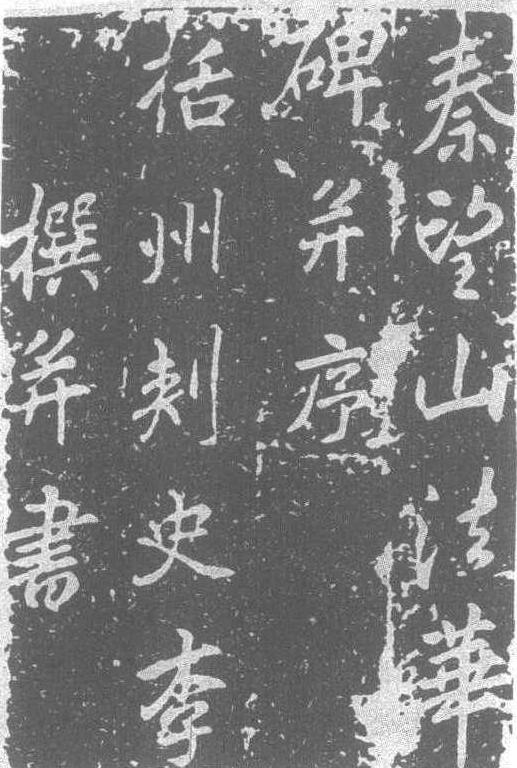 秦望山法華
碑并序
括州刺史李
撰并書